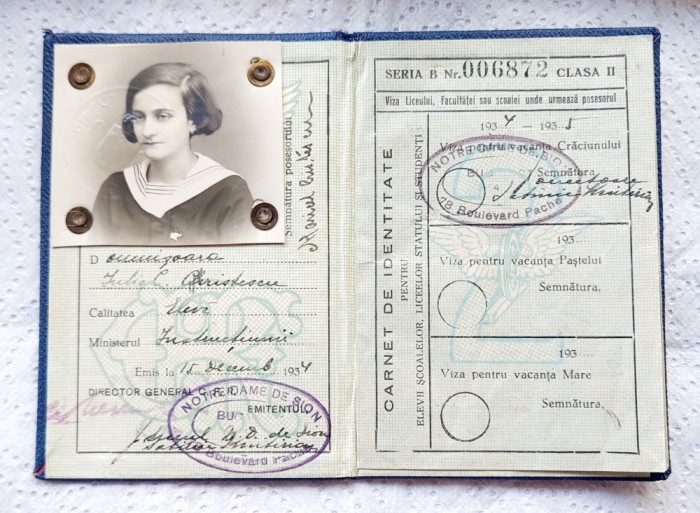 Semnătura posesorului
D omnișoara
Iulia C. Christescu
Calitatea Elevă
Ministerul Instrucțiunii
Emis la 15 Decemb 1934
DIRECTOR GENERAL C.F.R.
EMITENTUL
NOTRE DAME DE SION
BU
Boulevard Pache
N. D. de Sion
SERIA B Nr. 006872 CLASA II
Viza Liceului, Facultăței sau școalei unde urmează posesorul
CARNET DE IDENTITATE
PENTRU
ELEVII ȘCOALELOR, LICEELOR STATULUI ȘI STUDENȚI
1934 - 1935
Viza pentru vacanța Crăciunului
Semnătura,
NOTRE DAME DE SION
BU
78 Boulevard Pache
193
Viza pentru vacanța Paștelui
Semnătura,
193
Viza pentru vacanța Mare
Semnătura,